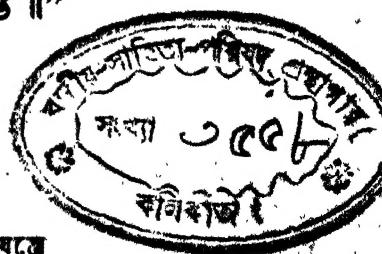 ॥”
বঙ্গীয়-সাহিত্য-পরিষদ্ গ্রন্থাগার
সংখ্যা ৩৫৫৮
কলিকাতা।